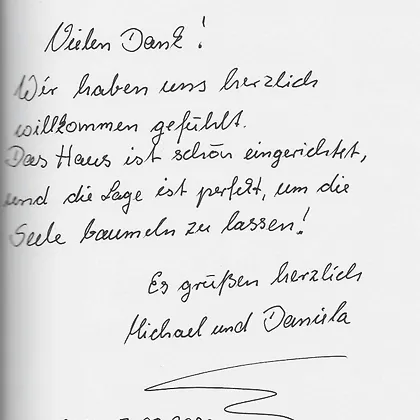 Vielen Dank!
Wir haben uns herzlich
willkommen gefühlt.
Das Haus ist schön eingerichtet,
und die Lage ist perfekt, um die
Seele baumeln zu lassen!
Es grüßen herzlich
Michael und Daniela